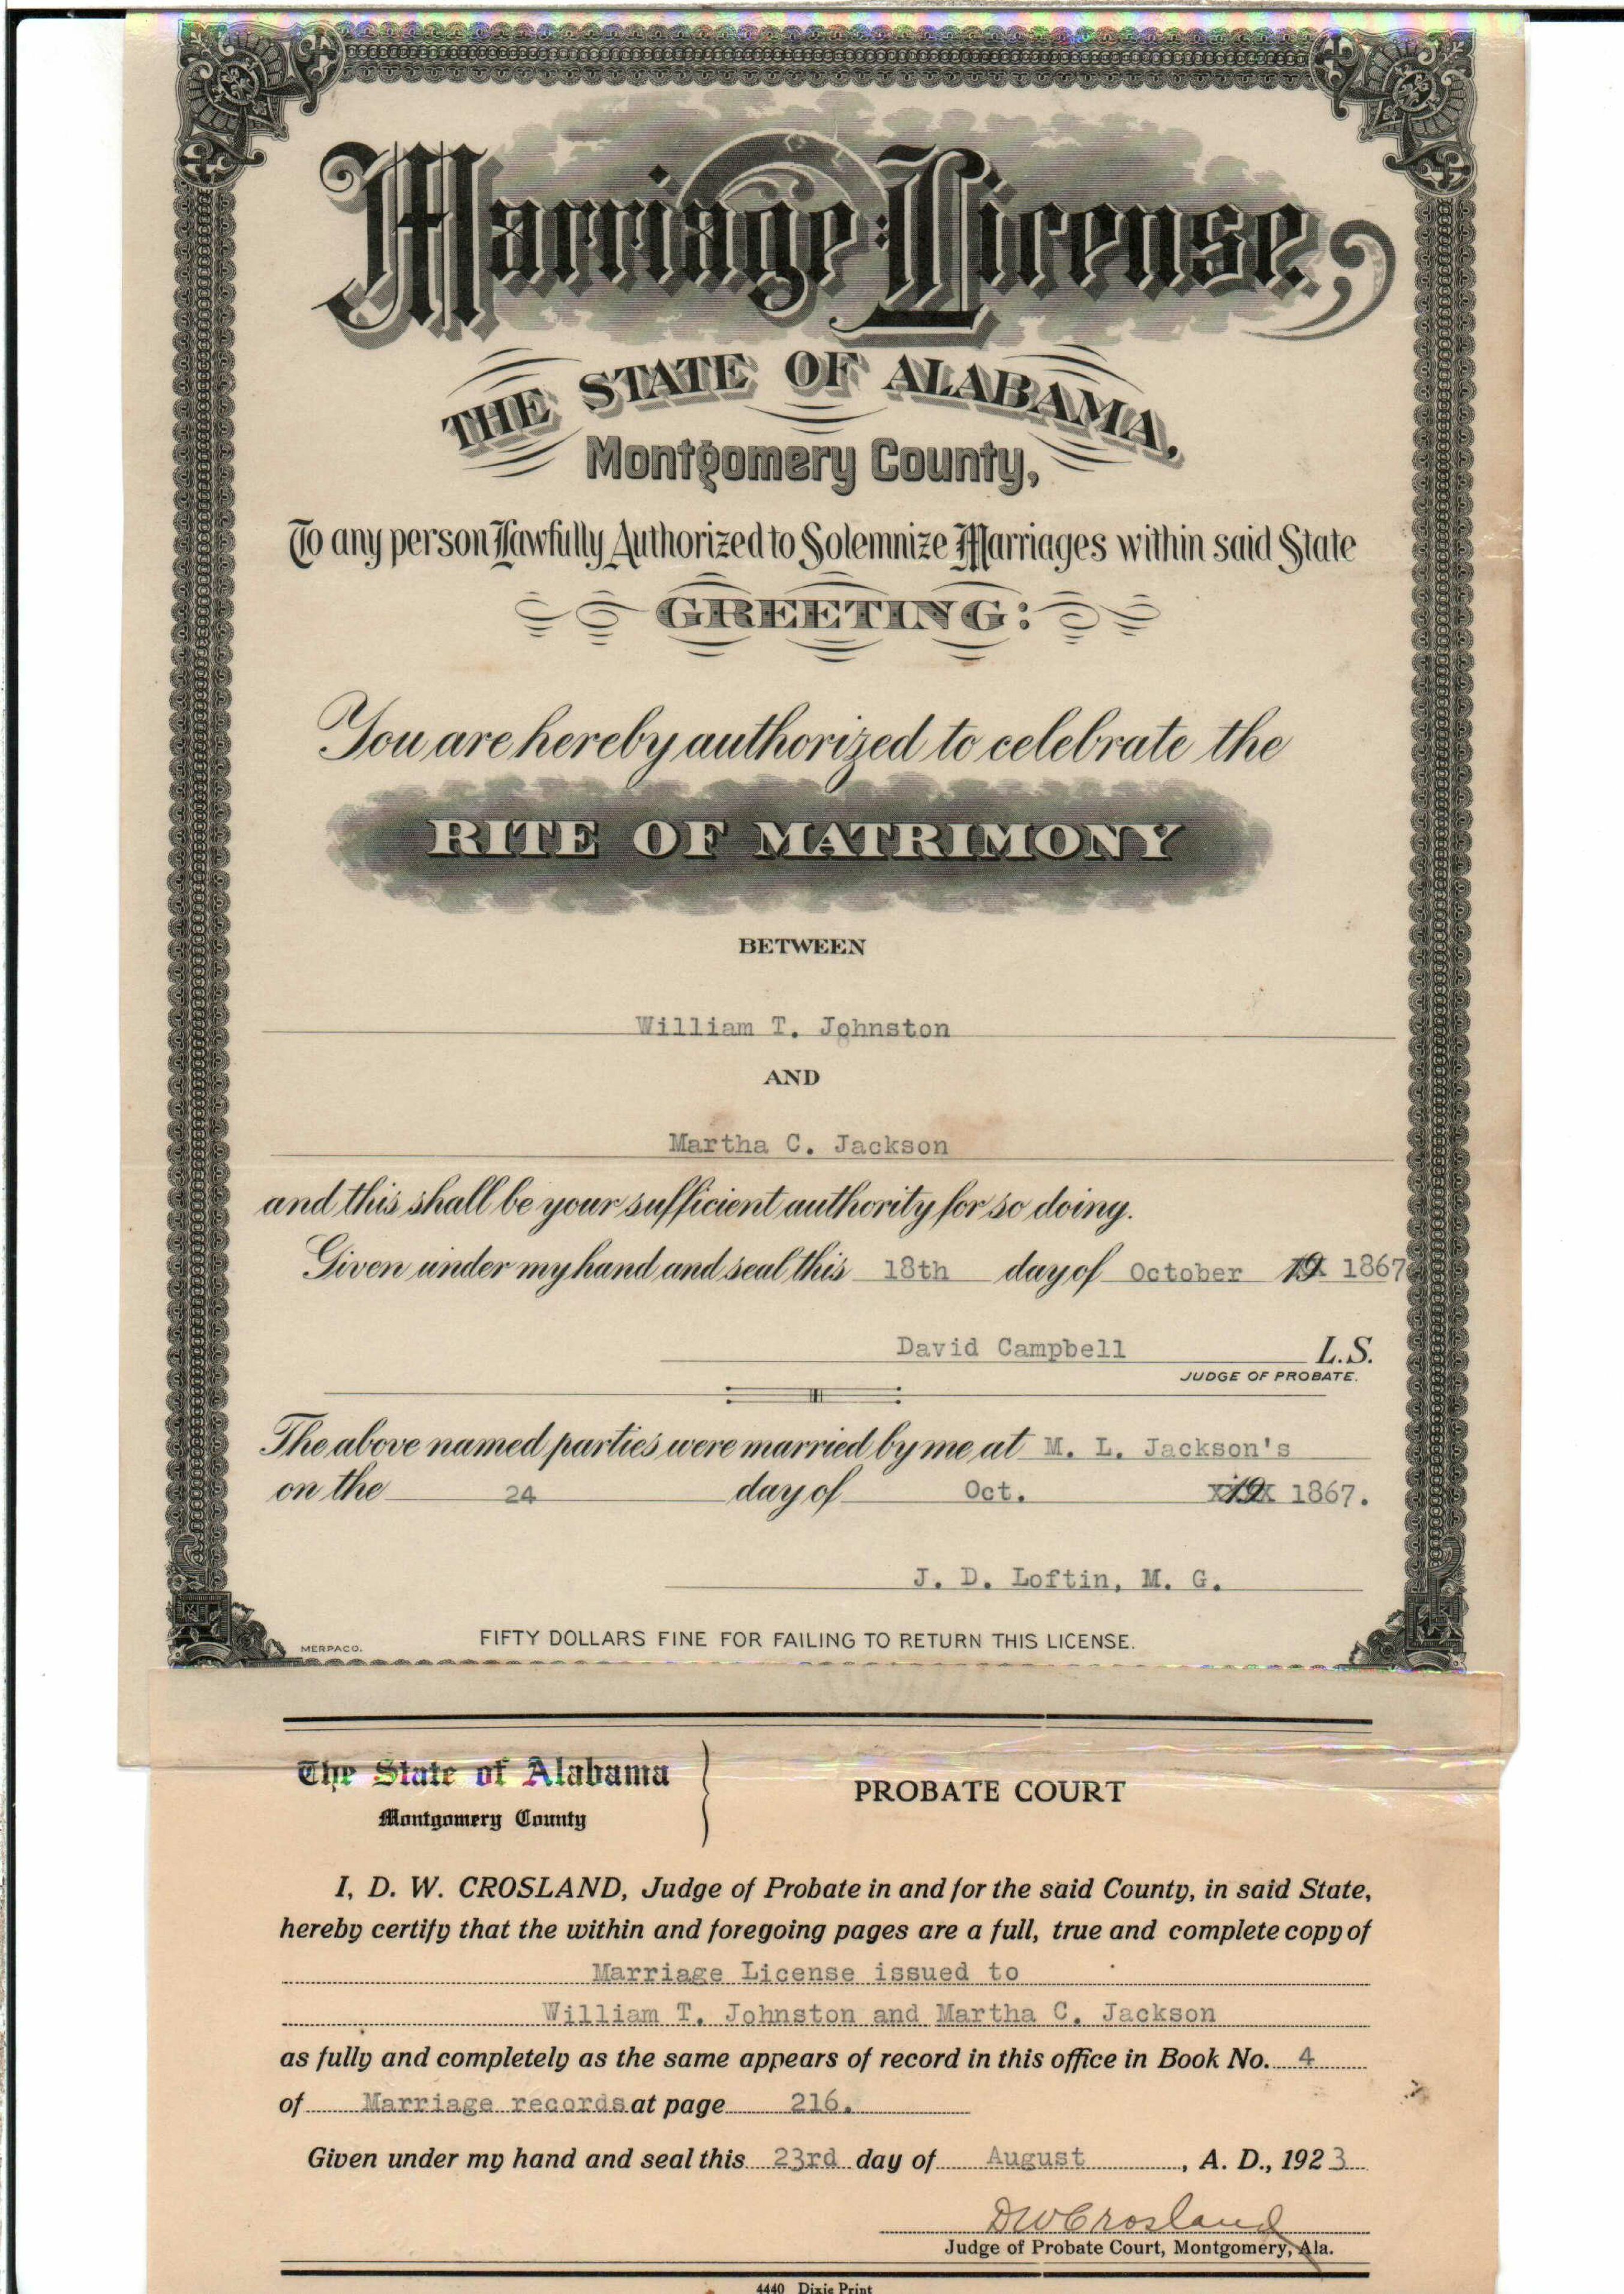 Marriage License,
THE STATE OF ALABAMA,
Montgomery County,
To any person Lawfully Authorized to Solemnize Marriages within said State
GREETING:
You are hereby authorized to celebrate the
RITE OF MATRIMONY
BETWEEN
William T. Johnston
AND
Martha C. Jackson
and this shall be your sufficient authority for so doing.
Given under my hand and seal this 18th day of October 19 1867
David Campbell L.S.
JUDGE OF PROBATE.
The above named parties were married by me at M. L. Jackson's
on the 24 day of Oct. 19 1867.
J. D. Loftin, M. G.
MERPACO. FIFTY DOLLARS FINE FOR FAILING TO RETURN THIS LICENSE.
The State of Alabama
Montgomery County
PROBATE COURT
I, D. W. CROSLAND, Judge of Probate in and for the said County, in said State,
hereby certify that the within and foregoing pages are a full, true and complete copy of
Marriage License issued to
William T. Johnston and Martha C. Jackson
as fully and completely as the same appears of record in this office in Book No. 4
of Marriage records at page 216.
Given under my hand and seal this 23rd day of August, A. D., 1923
DWCrosland
Judge of Probate Court, Montgomery, Ala.
4440 Dixie Print